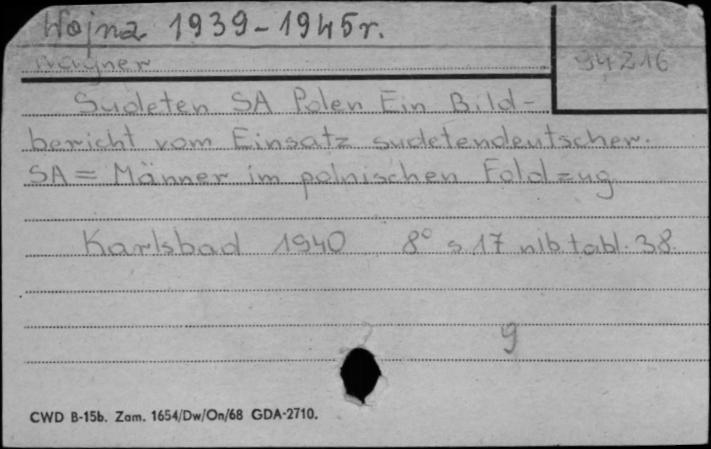 Wojna 1939-1945r.
Wagner
94216
Sudeten SA Polen Ein Bild-
bericht vom Einsatz sudetendeutscher.
SA= Männer im polnischen Foldzug
Karlsbad 1940 8° s.17 nlb tabl. 38.
9
CWD B-15b. Zam. 1654/Dw/On/68 GDA-2710.